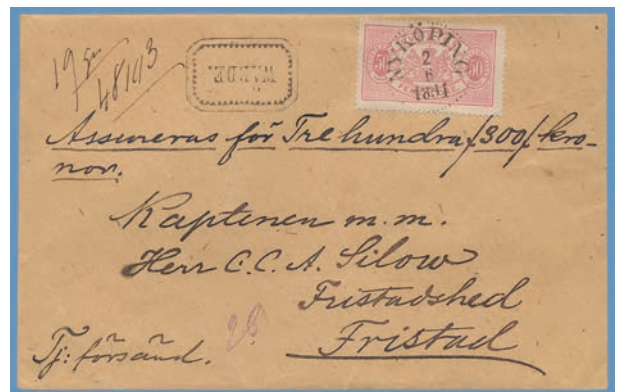 19 gr
48193
VÄRDE
50 50
NYKÖPING
2
6
Assureras för Tre hundra /300/ kro-
nor.
Kaptenen m. m.
Herr C. C. A. Silow
Fristadshed
Fristad
Tj: försänd.